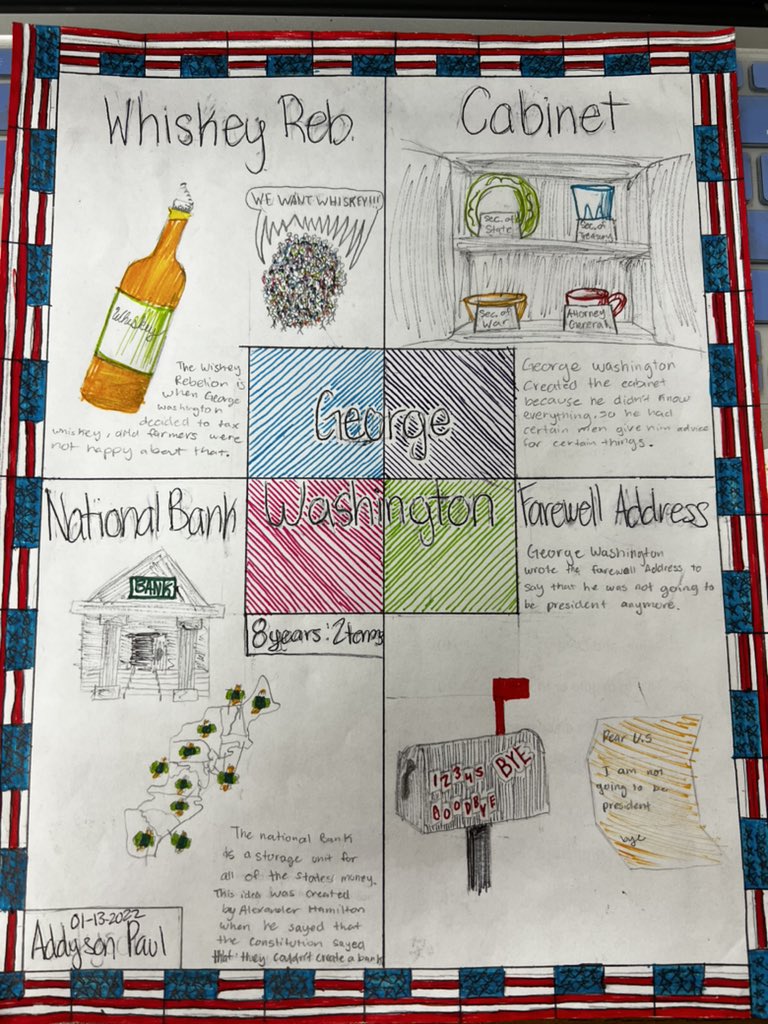 Whiskey Reb.
WE WANT WHISKEY!!!
Whiskey
The Wiskey
Rebelion is
when George
washington
decided to tax
whiskey, and farmers were
not happy about that.
Cabinet
Sec. of
State
Sec. of
Treasury
Sec. of
War
Attorney
General
George Washington
Created the cabinet
because he didn't know
everything, so he had
certain men give him advice
for certain things.
George
Washington
8 years: 2 terms
National Bank
BANK
The national Bank
is a storage unit for
all of the states' money.
This idea was created
by Alexander Hamilton
when he sayed that
the Constitution sayed
that they couldn't create a bank
Farewell Address
George Washington
wrote the farewell Address to
say that he was not going to
be president anymore.
12345
BYE
GOODBYE
Dear U.S
I am not
going to be
president
bye
01-13-2022
Addyson Paul